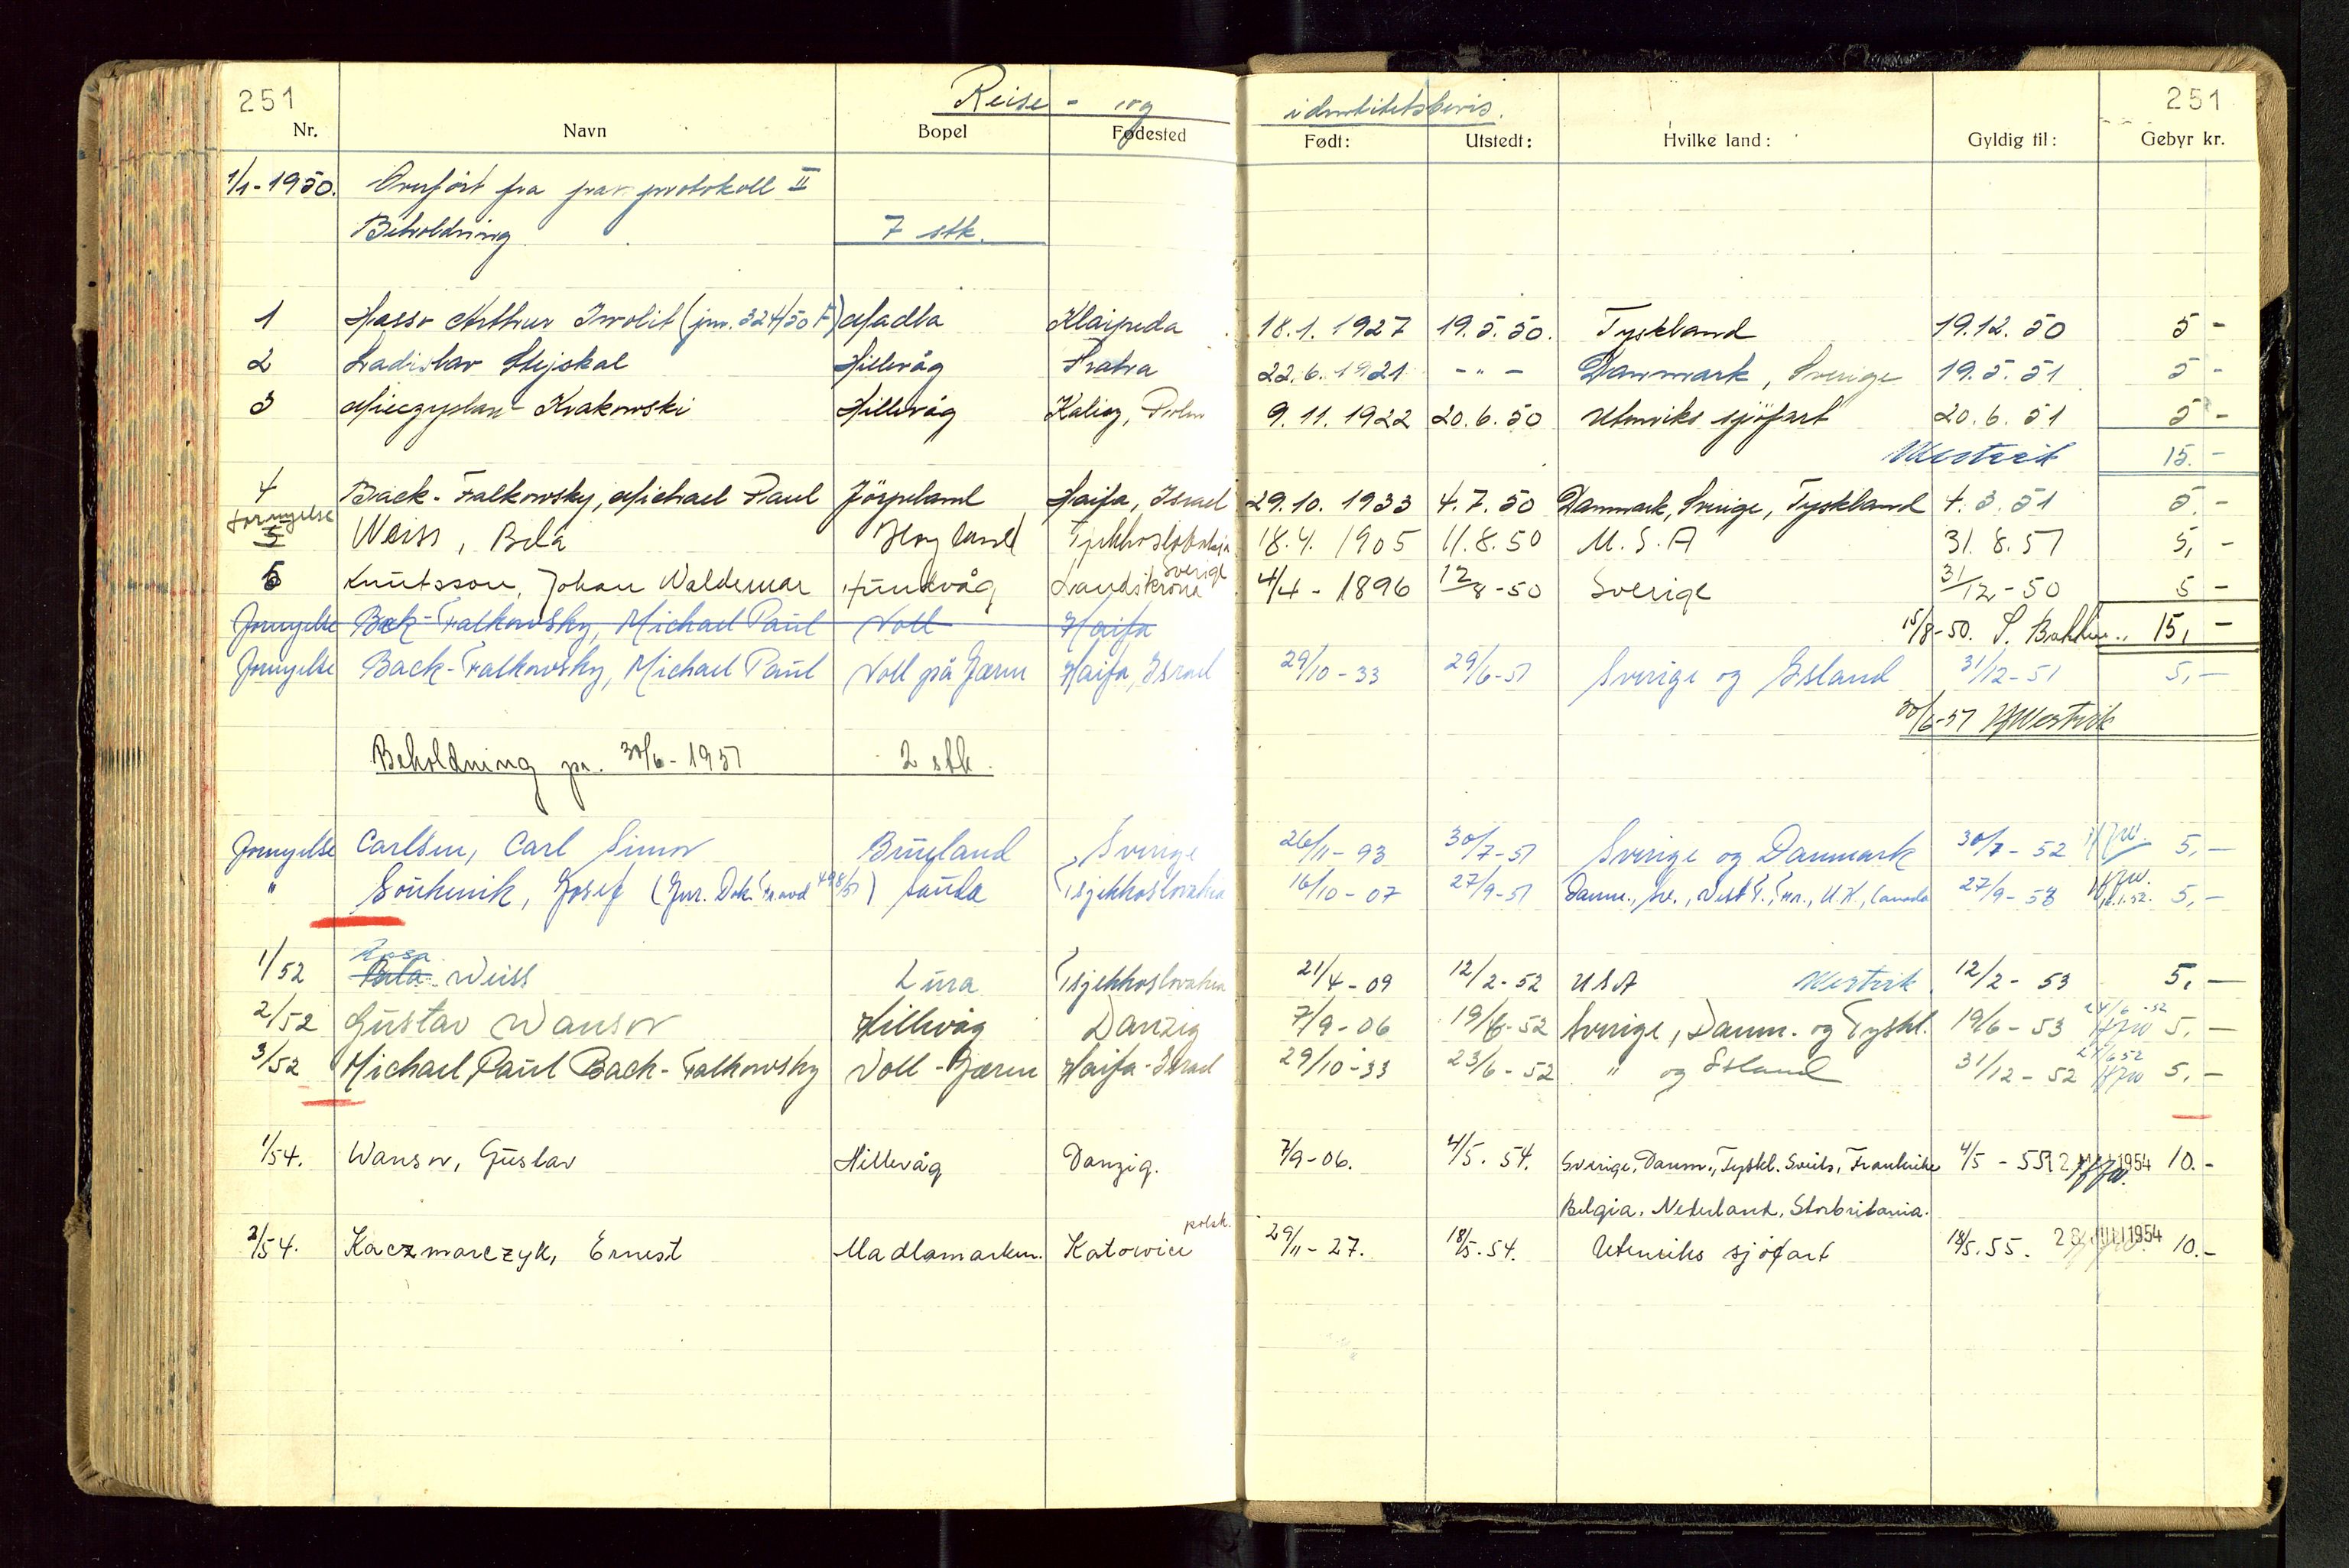 251 Reise- og identitetsbevis. 251
Nr. Navn Bopel Fødested Født: Utstedt: Hvilke land: Gyldig til: Gebyr kr.
1/1-1950. Overført fra protokoll II
Beholdning 7 stk.
1 Hasso Arthur (jnr. 324/50 F) Madla Klaipeda 18.1.1927 19.5.50. Tyskland 19.12.50 5 -
2 Ladislav Stejskal Hillevåg Praha 22.6.1921 - " - Danmark, Sverige 19.5.51 5 -
3 Krakowski Hillevåg 9.11.1922 20.6.50 Utenriks sjöfart 20.6.51 5 -
15.-
4 Back-Falkowsky, Michael Paul Jörpeland Haifa, Israel 29.10.1933 4.7.50 Danmark, Sverige, Tyskland 4.3.51 5.-
fornyelse
5 Weiss, Bela Høyland Tjekkoslovakia 18.4.1905 11.8.50 U.S.A 31.8.51 5,-
Sverige
Knutsson, Johan Waldemar Hundvåg Landskrona 4/4-1896 12/8-50 Sverige 31/12-50 5 -
Fornyelse Back-Falkowsky, Michael Paul Voll Haifa 15/8-50. 15,-
Fornyelse Back-Falkowsky, Michael Paul Voll på Jæren Haifa, Israel 29/10-33 29/6-51 Sverige og Island 31/12-51 5,-
30/6-51
Beholdning pr. 30/6-1951 2 stk.
Fornyelse Carlsen, Carl Simon Brueland Sverige 26/11-93 30/7-51 Sverige og Danmark 30/7-52 5,-
" Josef Sauda Tsjekkoslovakia 16/10-07 27/9-51 Danm., Sv., Vest T., Fr., U.K., Canada 27/9-53 5,-
Rosa
1/52 Bela Weiss Lura Tsjekkoslovakia 21/4-09 12/2-52 USA 12/2-53 5,-
2/52 Gustav Wansor Hillevåg Danzig 7/9-06 19/6-52 Sverige, Danm. og Tyskl. 19/6-53 24/6-52 5,-
3/52 Michael Paul Back-Falkowsky Voll-Jæren Haifa-Israel 29/10-33 23/6-52 " og Island 31/12-52 24/6 52 5,-
1/54. Wansor, Gustav Hillevåg Danzig. 7/9-06. 4/5.54. Sverige, Danm., Tyskl. Sveits, Frankrike 4/5-55 1954 10.-
Belgia, Nederland, Storbritania.
polsk.
2/54. Kaczmarczyk, Ernest Madlamarken. Katowice 29/11-27. 18/5.54. Utenriks sjöfart 18/5.55. 1954 10.-